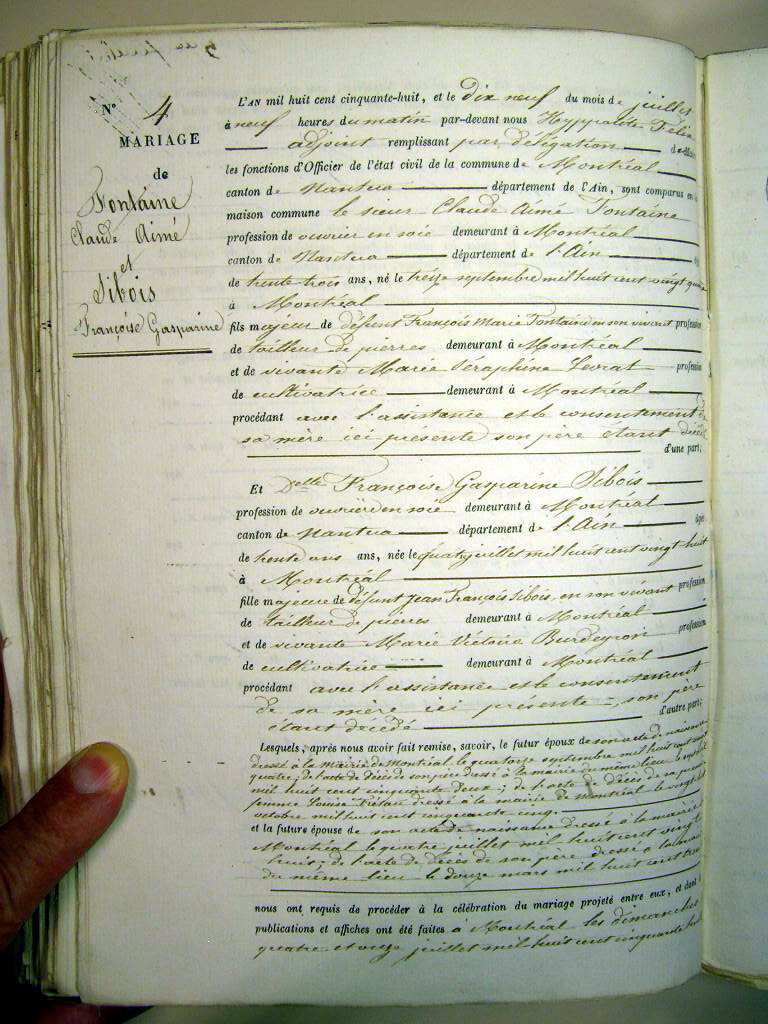 N° 4
MARIAGE
de
Fontaine
Claude Aimé
et
Sibois
Françoise Gasparine
L'AN mil huit cent cinquante-huit, et le dix neuf du mois de juillet
à neuf heures du matin par-devant nous Hyppolite Félix
adjoint remplissant par délégation
les fonctions d'Officier de l'état civil de la commune de Montréal
canton de Nantua département de l'Ain, sont comparus en la
maison commune le sieur Claude Aimé Fontaine
profession de ouvrier en soie demeurant à Montréal
canton de Nantua département de l'Ain
de trente trois ans, né le treize septembre mil huit cent vingt quatre
à Montréal
fils majeur de défunt François Marie Fontaine en son vivant profession
de tailleur de pierres demeurant à Montréal
et de vivante Marie Séraphine Levrat profession
de cultivatrice demeurant à Montréal
procédant avec l'assistance et le consentement de
sa mère ici présente son père étant décédé
d'une part;
Et Delle Françoise Gasparine Sibois
profession de ouvrière en soie demeurant à Montréal
canton de Nantua département de l'Ain âgée
de trente ans ans, née le quatre juillet mil huit cent vingt huit
à Montréal
fille majeure de défunt Jean François Sibois en son vivant profession
de tailleur de pierres demeurant à Montréal
et de vivante Marie Victoire Burdeyron profession
de cultivatrice demeurant à Montréal
procédant avec l'assistance et le consentement
de sa mère ici présente, son père
étant décédé d'autre part;
Lesquels, après nous avoir fait remise, savoir, le futur époux de son acte de naissance
dressé à la mairie de Montréal le quatorze septembre mil huit cent vingt
quatre; de l'acte de décès de son père dressé à la mairie du même lieu le
mil huit cent cinquante deux; de l'acte de décès de sa première
femme Louise dressé à la mairie de Montréal le vingt
octobre mil huit cent cinquante cinq.
et la future épouse de son acte de naissance dressé à la mairie
Montréal le quatre juillet mil huit cent vingt
huit; de l'acte de décès de son père dressé à la mairie
du même lieu le douze mars mil huit cent
nous ont requis de procéder à la célébration du mariage projeté entre eux, et dont les
publications et affiches ont été faites à Montréal les dimanches
quatre et onze juillet mil huit cent cinquante huit